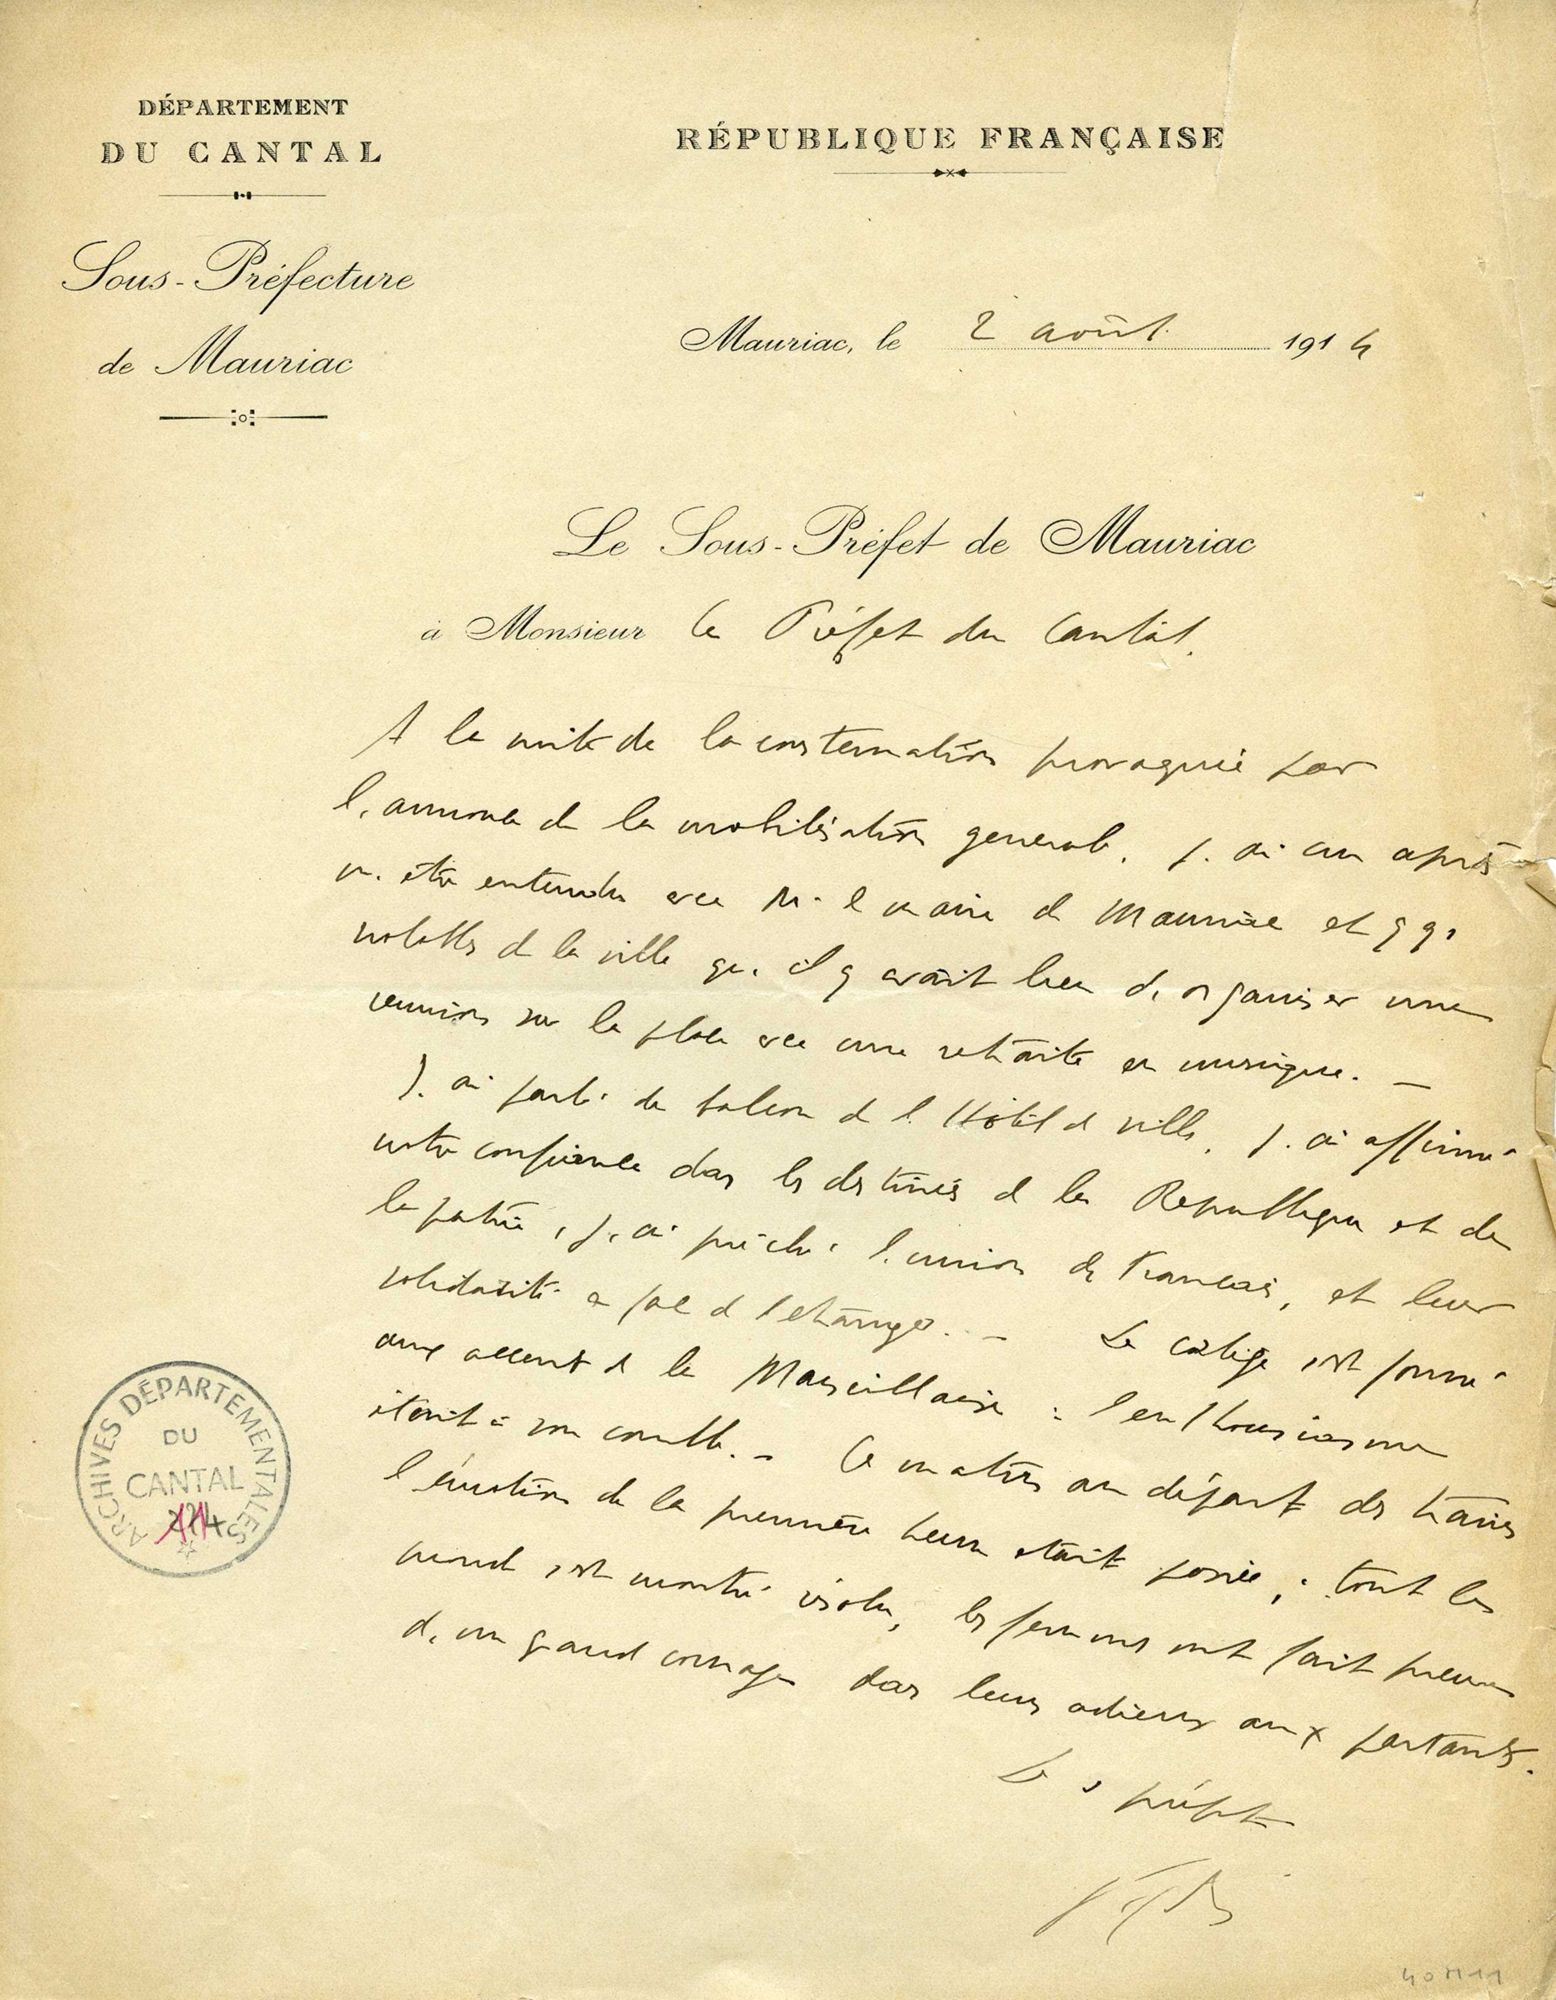 DÉPARTEMENT
DU CANTAL
Sous-Préfecture
de Mauriac
RÉPUBLIQUE FRANÇAISE
Mauriac, le 2 août 1914
Le Sous-Préfet de Mauriac
à Monsieur le Préfet du Cantal.
A la suite de la consternation provoquée par
l'annonce de la mobilisation générale, j'ai cru après
m'être entendu avec M. le maire de Mauriac et qqs
notables de la ville qu'il y avait lieu d'organiser une
réunion sur la place avec une retraite en musique. —
J'ai parlé du balcon de l'Hôtel de ville, j'ai affirmé
notre confiance dans les destinées de la République et de
la patrie, j'ai prêché l'union des Français, et leur
solidarité en face de l'étranger. — Le cortège s'est formé
aux accents de la Marseillaise : l'enthousiasme
était à son comble. — Ce matin au départ des trains
l'émotion de la première heure était passée ; tout le
monde s'est montré résolu, les femmes ont fait preuve
d'un grand courage dans leurs adieux aux partants.
Le s préfet
ARCHIVES DÉPARTEMENTALES
DU
CANTAL
40 M 11